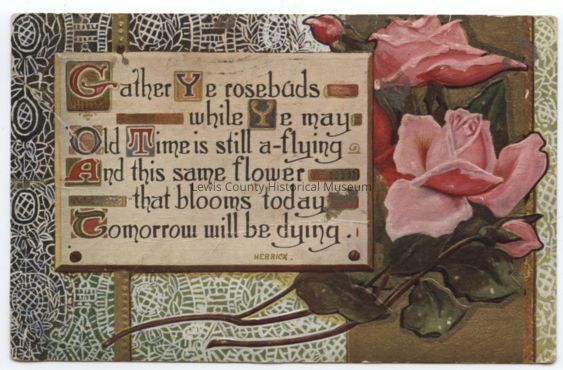 Gather Ye rosebuds
while Ye may
Old Time is still a-flying
And this same flower
Lewis County Historical Museum
that blooms today
Tomorrow will be dying.
HERRICK.